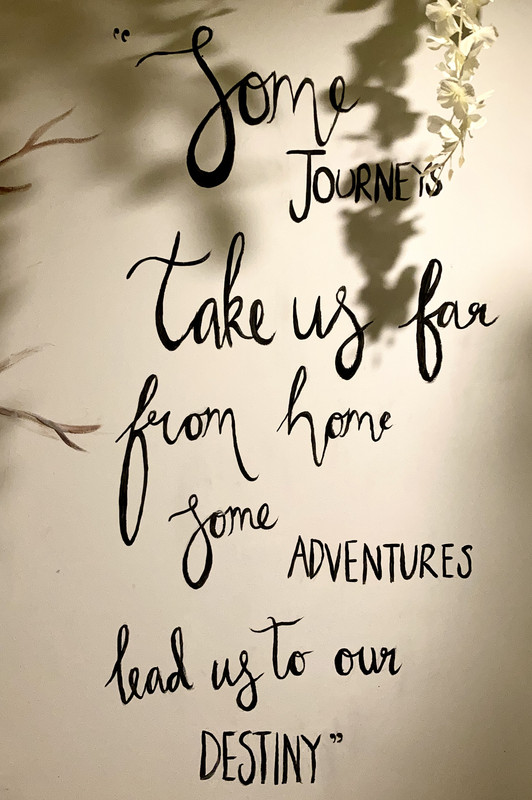 “Some
JOURNEYS
take us far
from home
some
ADVENTURES
lead us to our
DESTINY”